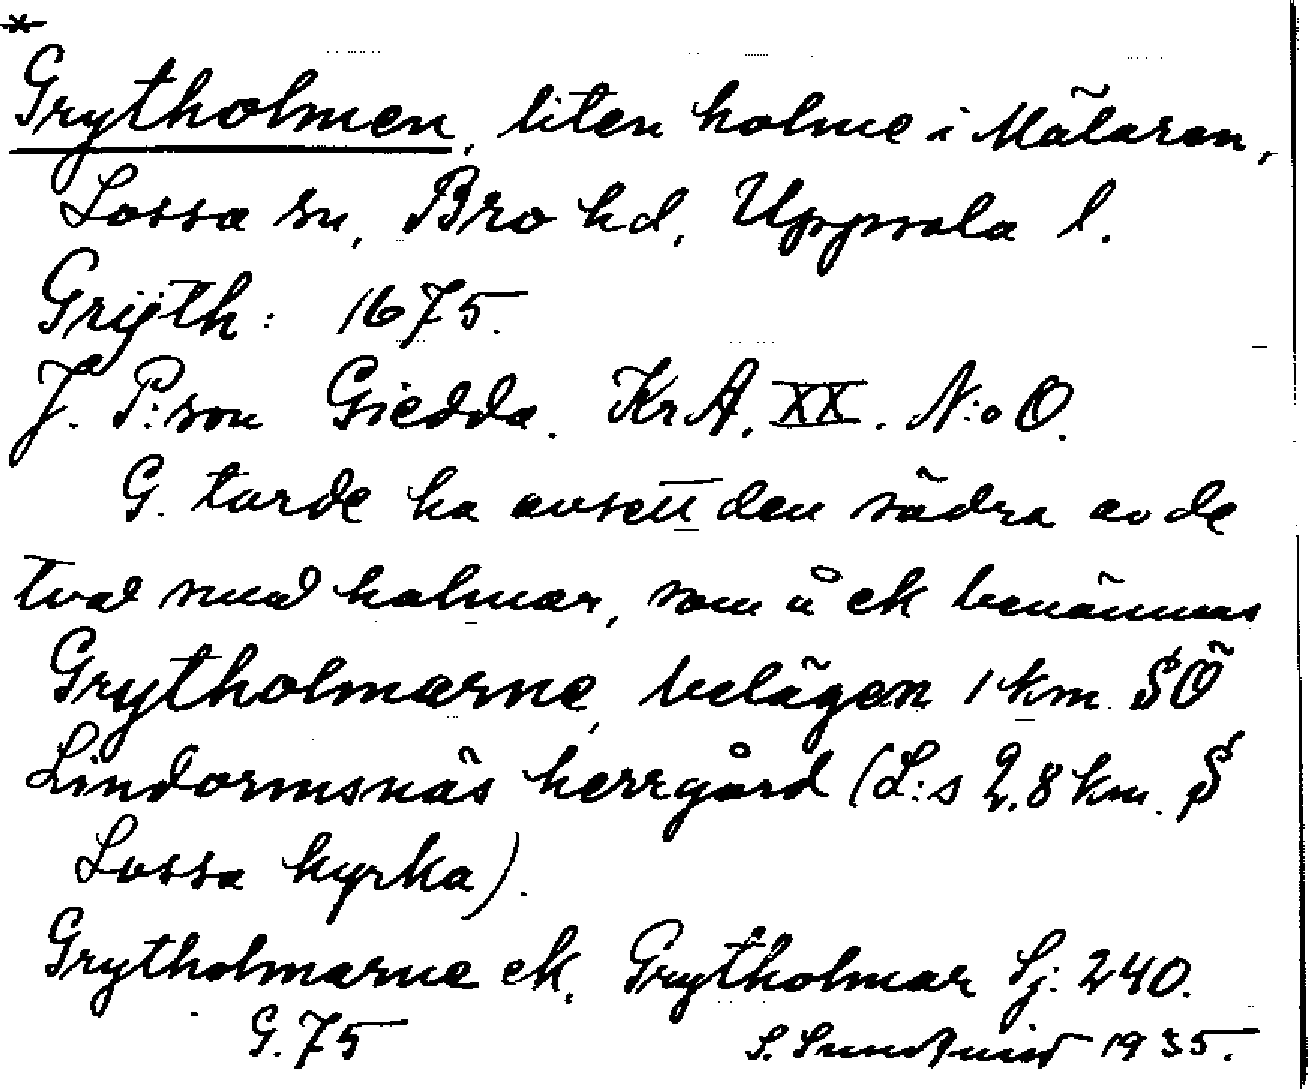 *
Grytholmen, liten holme i Mälaren,
Lossa sn, Bro hd, Uppsala l.
Grijth: 1675.
J. P:son Giedda. KrA. XX. N:o O.
G. torde ha avsett den södra av de
två små holmar, som å ek benämnas
Grytholmarne, belägen 1 km. SÖ
Lindormsnäs herrgård (L:s 2,8 km. S
Lossa kyrka).
Grytholmarne ek, Grytholmar Sj: 240.
G. 75 S. Sundquist 1935.